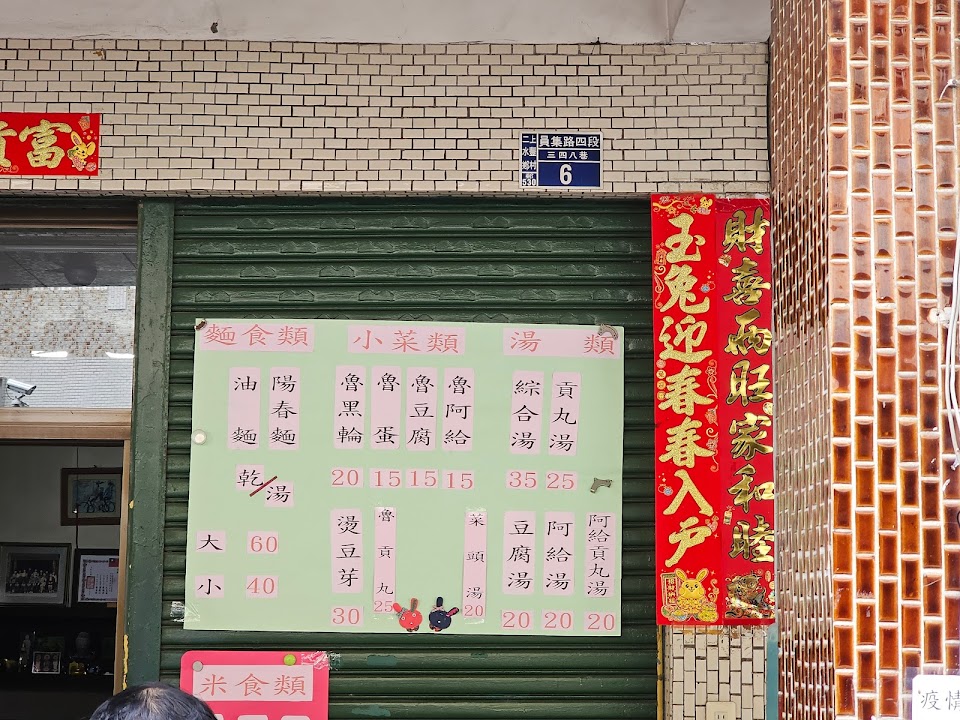 貴富
上豐村
二水鄉
530
員集路四段
三四八巷
6
財喜兩旺家和睦
玉兔迎春春入戶
麵食類
小菜類
湯類
陽春麵
油麵
乾/湯
大 60
小 40
魯阿給 15
魯豆腐 15
魯蛋 15
魯黑輪 20
魯貢丸 25
燙豆芽 30
貢丸湯 25
綜合湯 35
阿給貢丸湯 20
阿給湯 20
豆腐湯 20
菜頭湯 20
米食類
疫情